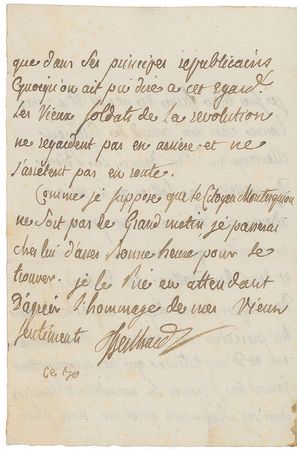 que dans ses principes républicains
Quoiqu'on ait pu dire a cet egard.
Les Vieux soldats de La revolution
ne regardent pas en arriere et ne
s'arêtent pas en route.
Comme je suppose que le Citoyen Montesquiou
ne sort pas de Grand matin je passerai
chez lui d'assez bonne heure pour le
trouver. je le Prie en attendant
D'agréer l'hommage de mes Vieux
sentiments
Ce 30